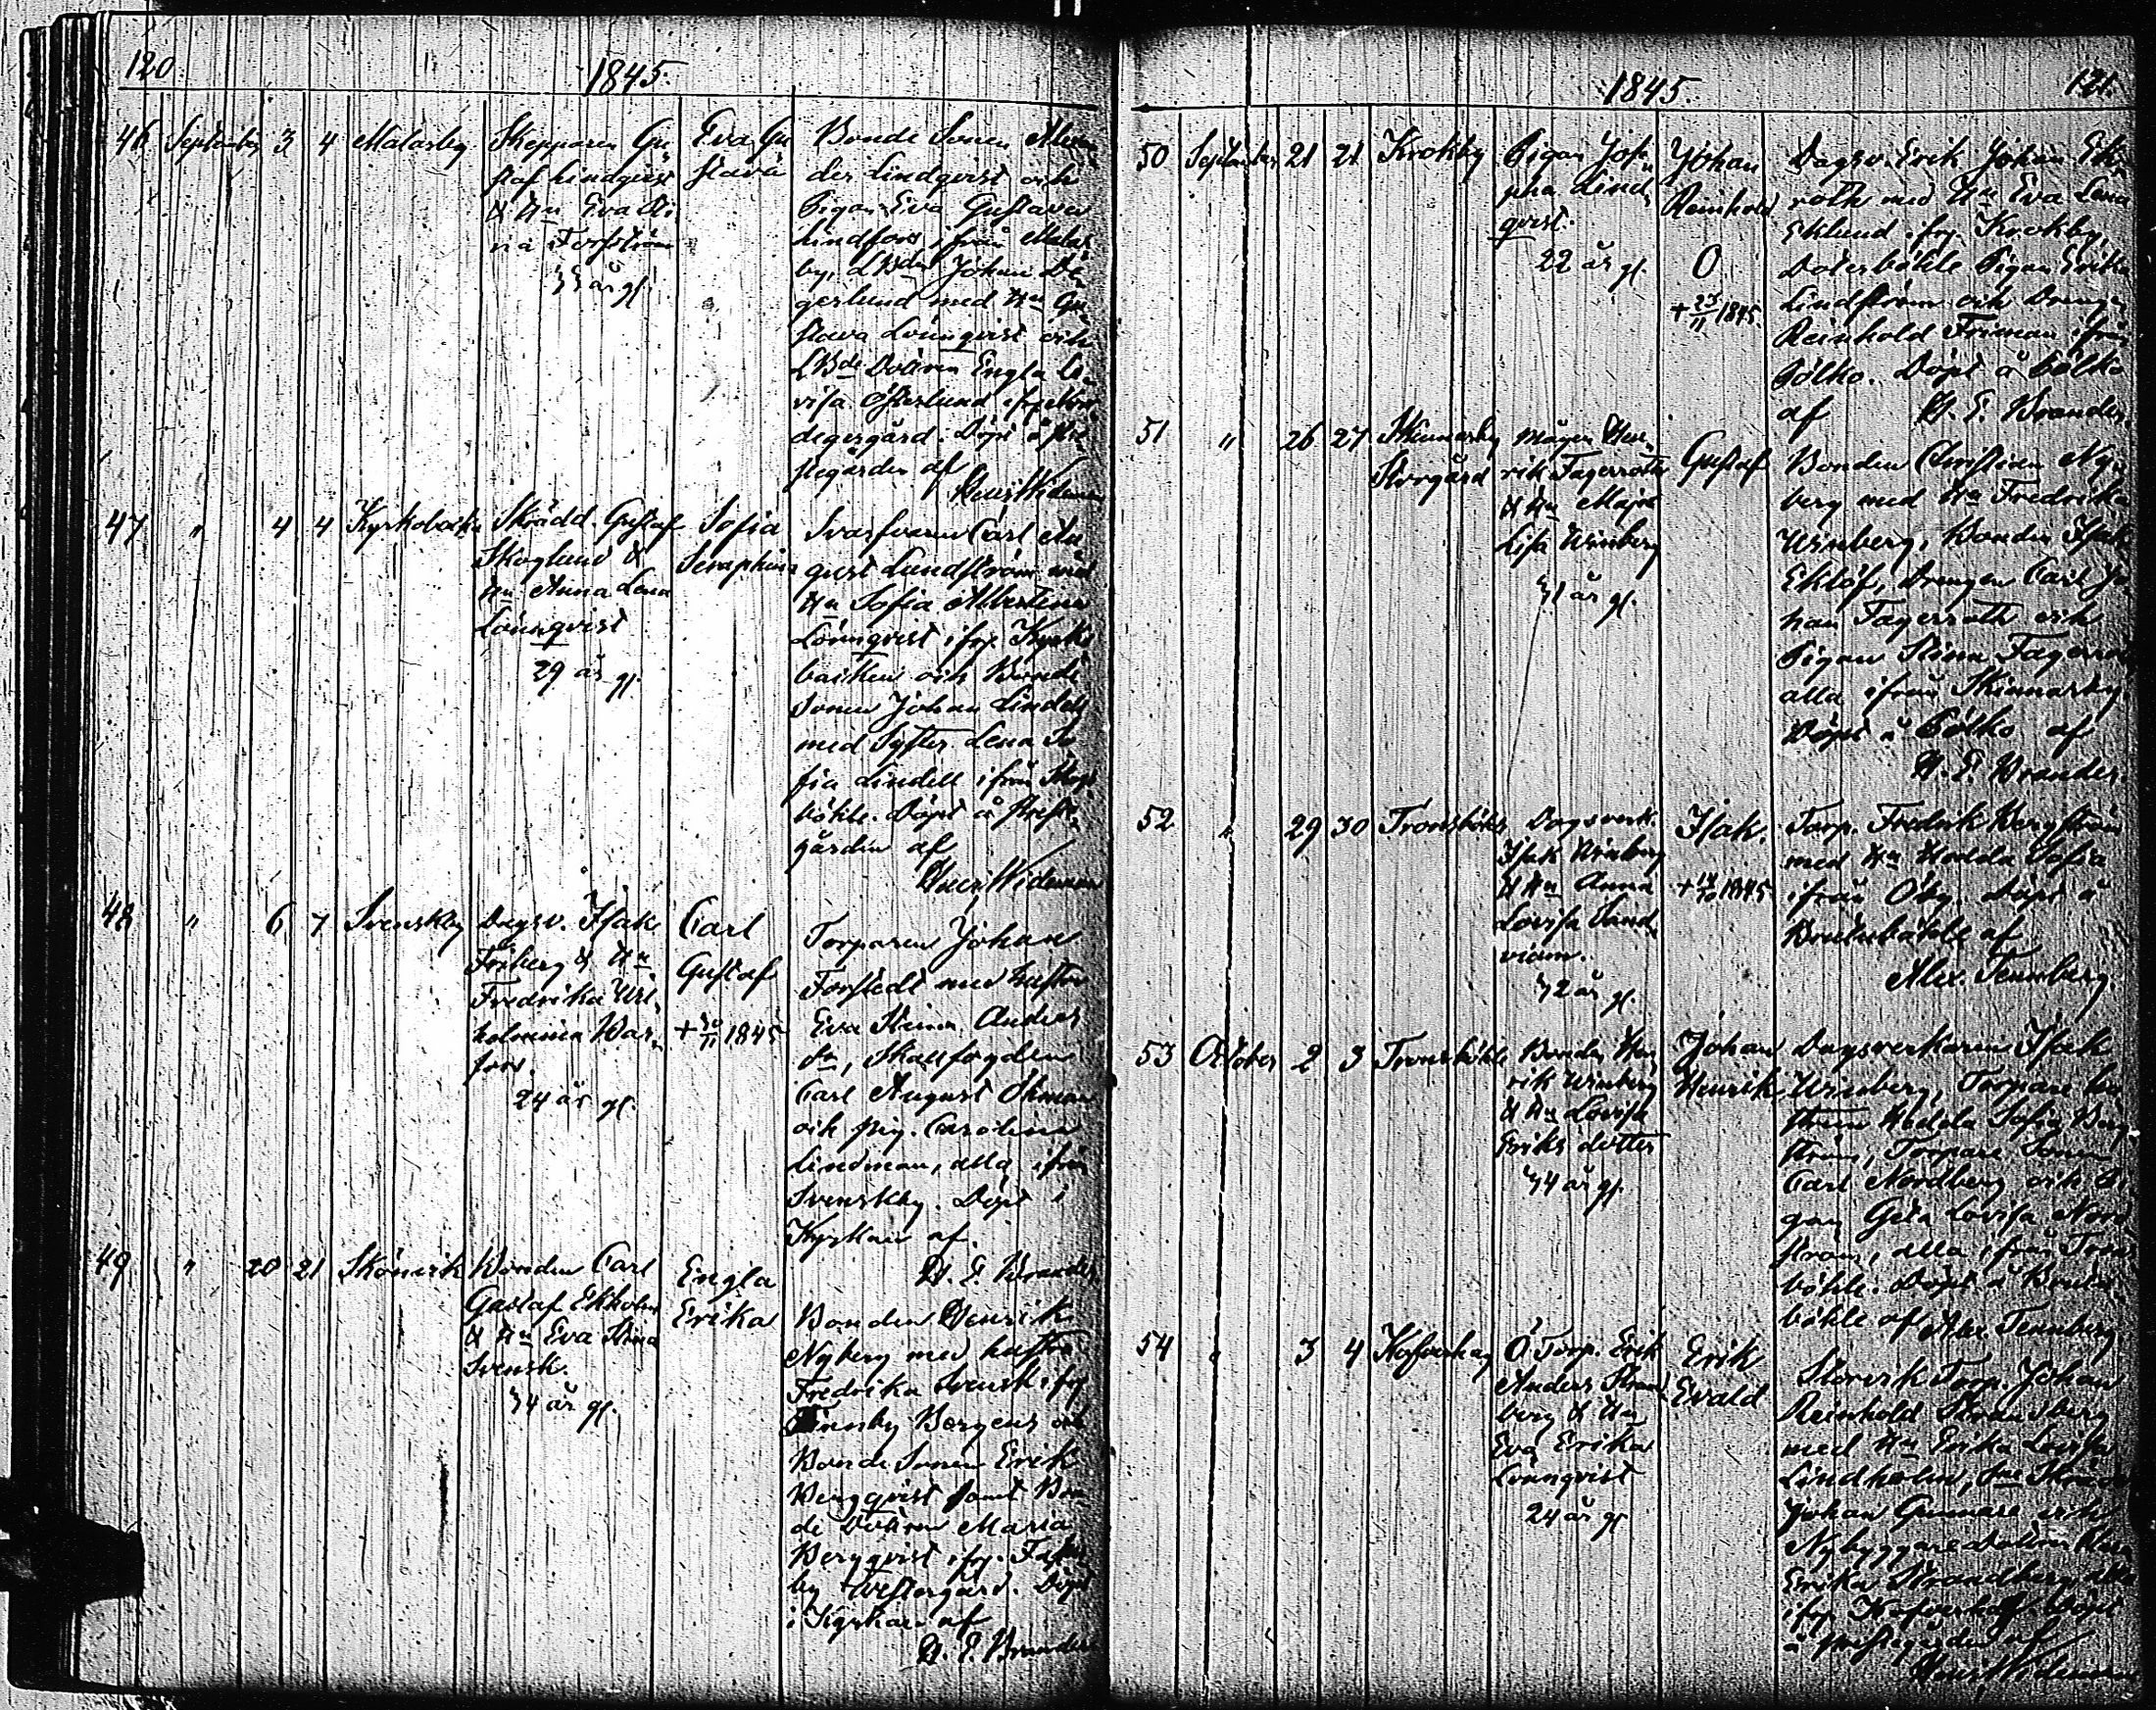 120
1845.
46 September 3 4 Malarby
Skepparen Gu
staf Lindqvist
& Hu Eva
ria Forsström
33 år gl.
Eva Gu
stava
Bonde Sonen
der Lindqvist och
Pigan Eva Gustava
Lindfors ifrån Malar
by, Johan De
gerlund med Hu Gu
stava Lönnqvist och
Dottren Engla Lo
visa Österlund
degergård. Döpt å Pre
stegården af
Henr Wideman
47 " 4 4 Kyrkobacken
Skrädd. Gustaf
Skoglund &
Hu Anna Lena
Lönnqvist
29 år gl.
Sofia
Seraphina
Svarfvaren Carl Au
gust Lundström med
Hu Sofia Albertina
Lönnqvist ifr. Kyrko
backen och Bonde
Sonen Johan Lindell
med Syster Lena So
fia Lindell ifrån Skogs
böhle. Döpt å Preste
gården af
Henr Wideman
48 " 6 7 Svenskby
Dagsv. Isak
Friberg & Hu
Fredrika Wil
helmina War
fors.
24 år gl.
Carl
Gustaf
+ 30/11 1845
Torparen Johan
Forstedt med hustru
Eva Stina Anders
dr, Skallfogden
Carl August Öhman
och pig. Carolina
Lindman, alla ifrån
Svenskby. Döpt i
Kyrkan af
H. E. Wrander
49 " 20 21 Skönvik
Bonden Carl
Gustaf Ekholm
& Hu Eva Stina
Svensk.
34 år gl.
Engla
Erika
Bonden Henrik
Nyberg med hustru
Fredrika Svensk ifr
Finnby Borgens och
Bonde Sonen Erik
Bergqvist samt Bon
de Dottren Maria
Bergqvist ifr.
by Westergård. Döpt
i Kyrkan af
H. E. Wrander
1845.
121.
50 September 21 21 Krokby
Pigan Jose
pha Lind
qvist.
22 år gl.
Johan
Reinhold
O
+ 23/11 1845.
Dagsv. Erik Johan Ek
roth med Hu Eva Lena
Eklund ifr. Krokby,
Pigan Erika
Lindström och Drengen
Reinhold Friman ifrån
Pölko. Döpt å Pölko
af H. E. Wrander
51 " 26 27 Skinnarby
Storgård
Mågen Hen
rik Fagerroth
& Hu Maja
Lisa Winberg
31 år gl.
Gustaf
Bonden Christian Ny
berg med Hu Fredrika
Winberg, Bonden Isak
Eklöf, Drengen Carl Jo
han Fagerroth och
Pigan Stina Fagerroth
alla ifrån Skinnarby.
Döpt å Pölko af
H. E. Wrander.
52 " 29 30 Tronsböhle
Dagsverk.
Isak Winberg
& Hu Anna
Lovisa Sand
32 år gl.
Isak.
1845
Torp. Fredrik Bergström
med Hu Hedda Sofia
ifrån Öby. Döpt å
af
Alex. Tennberg.
53 October 2 3 Tronsböhle
Bonden Hen
rik Winberg
& Hu Lovisa
Eriks dotter
34 år gl.
Johan
Henrik
Dagsverkaren Isak
Winberg, Torpare hu
strun Hedda Sofia Berg
ström, Torpare Sonen
Carl Nordberg och Pi
gan Greta Lovisa Nord
ström, alla ifrån Trons
böhle. Döpt å
böhle af Alex Tennberg
54 " 3 4
Ö Torp. Erik
Anders Strand
berg & Hu
Eva Erika
Lönnqvist
24 år gl
Erik
Evald
Storvik Torp. Johan
Reinhold Strandberg
med Hu Erika Lovisa
Lindholm,
Johan och
Nybyggare Dottren
Erika Strandberg, alla
ifr. Döpt
å Prestegården af
Henr Wideman